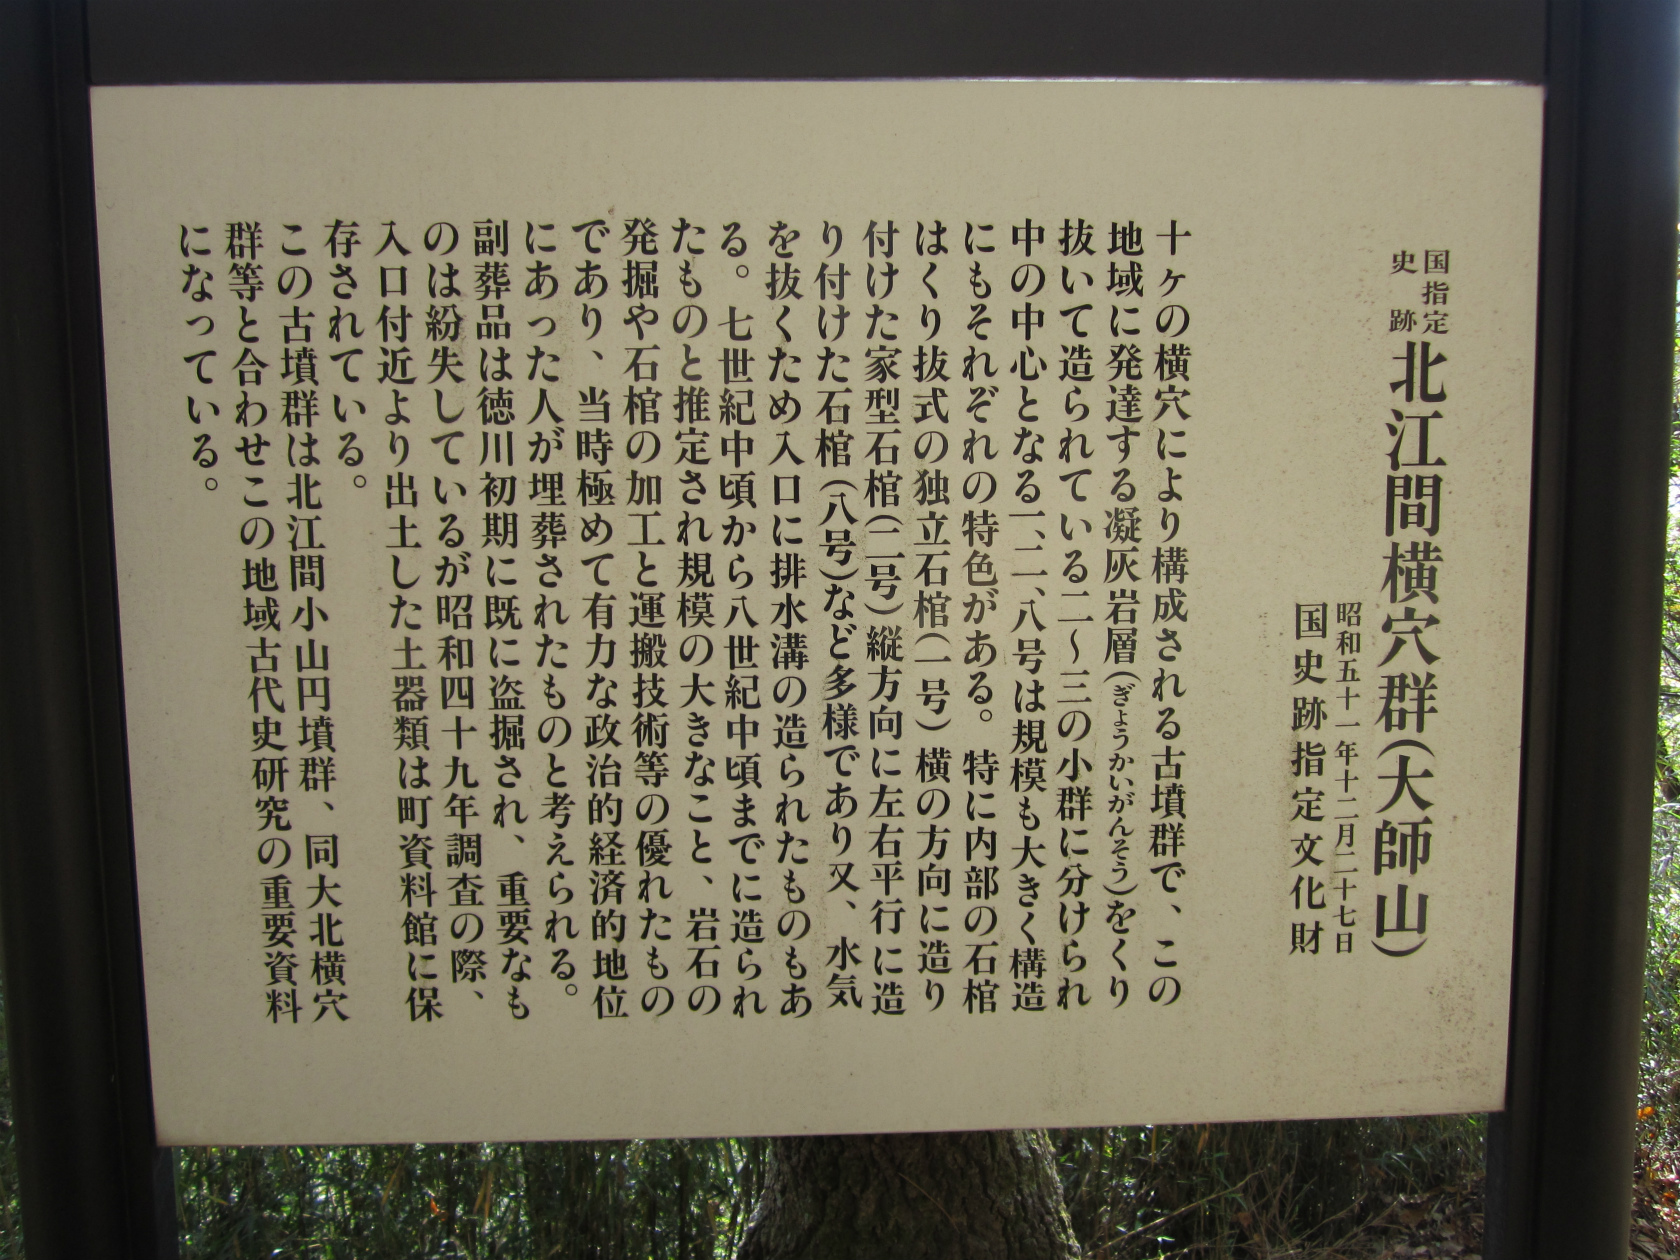 国指定
史跡
北江間横穴群(大師山)
昭和五十一年十二月二十七日
国史跡指定文化財
十ヶの横穴により構成される古墳群で、この
地域に発達する凝灰岩層(ぎょうかいがんそう)をくり
抜いて造られている二〜三の小群に分けられ
中の中心となる一、二、八号は規模も大きく構造
にもそれぞれの特色がある。特に内部の石棺
はくり抜式の独立石棺(一号)横の方向に造り
付けた家型石棺(二号)縦方向に左右平行に造
り付けた石棺(八号)など多様であり又、水気
を抜くため入口に排水溝の造られたものもあ
る。七世紀中頃から八世紀中頃までに造られ
たものと推定され規模の大きなこと、岩石の
発掘や石棺の加工と運搬技術等の優れたもの
であり、当時極めて有力な政治的経済的地位
にあった人が埋葬されたものと考えられる。
副葬品は徳川初期に既に盗掘され、重要なも
のは紛失しているが昭和四十九年調査の際、
入口付近より出土した土器類は町資料館に保
存されている。
この古墳群は北江間小山円墳群、同大北横穴
群等と合わせこの地域古代史研究の重要資料
になっている。